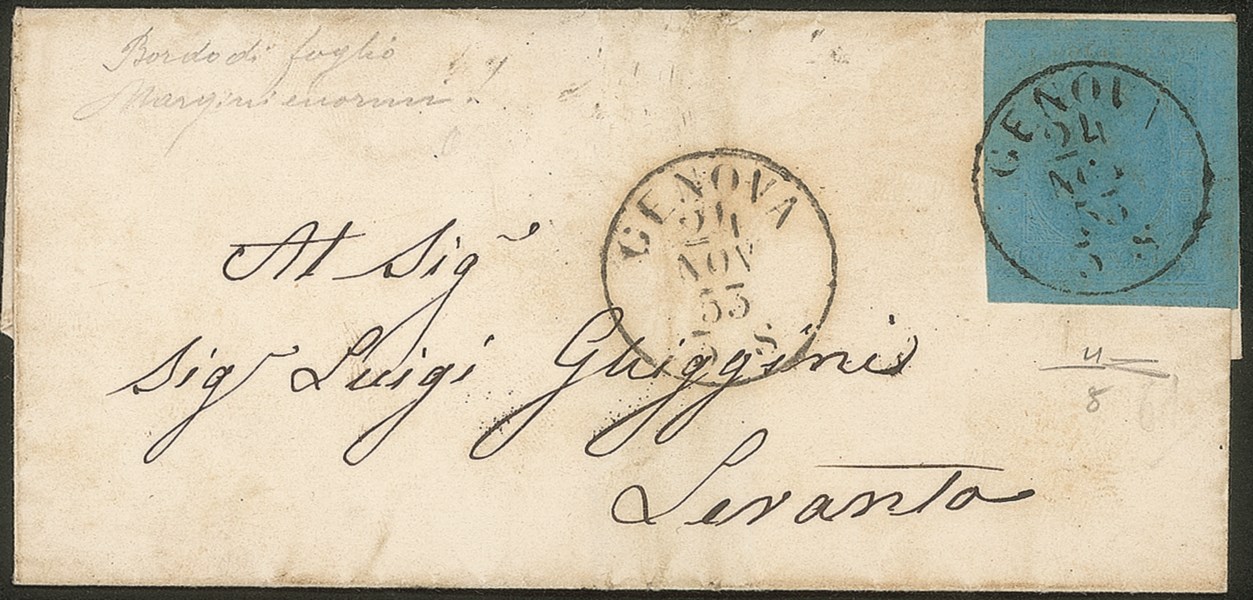 Bordo di foglio
Margini enormi!
GENOVA
24
NOV
53
S
GENOV
24
NOV
53
S
Al Sigr
Sigr Luigi Ghiggini
Levanto
11
8